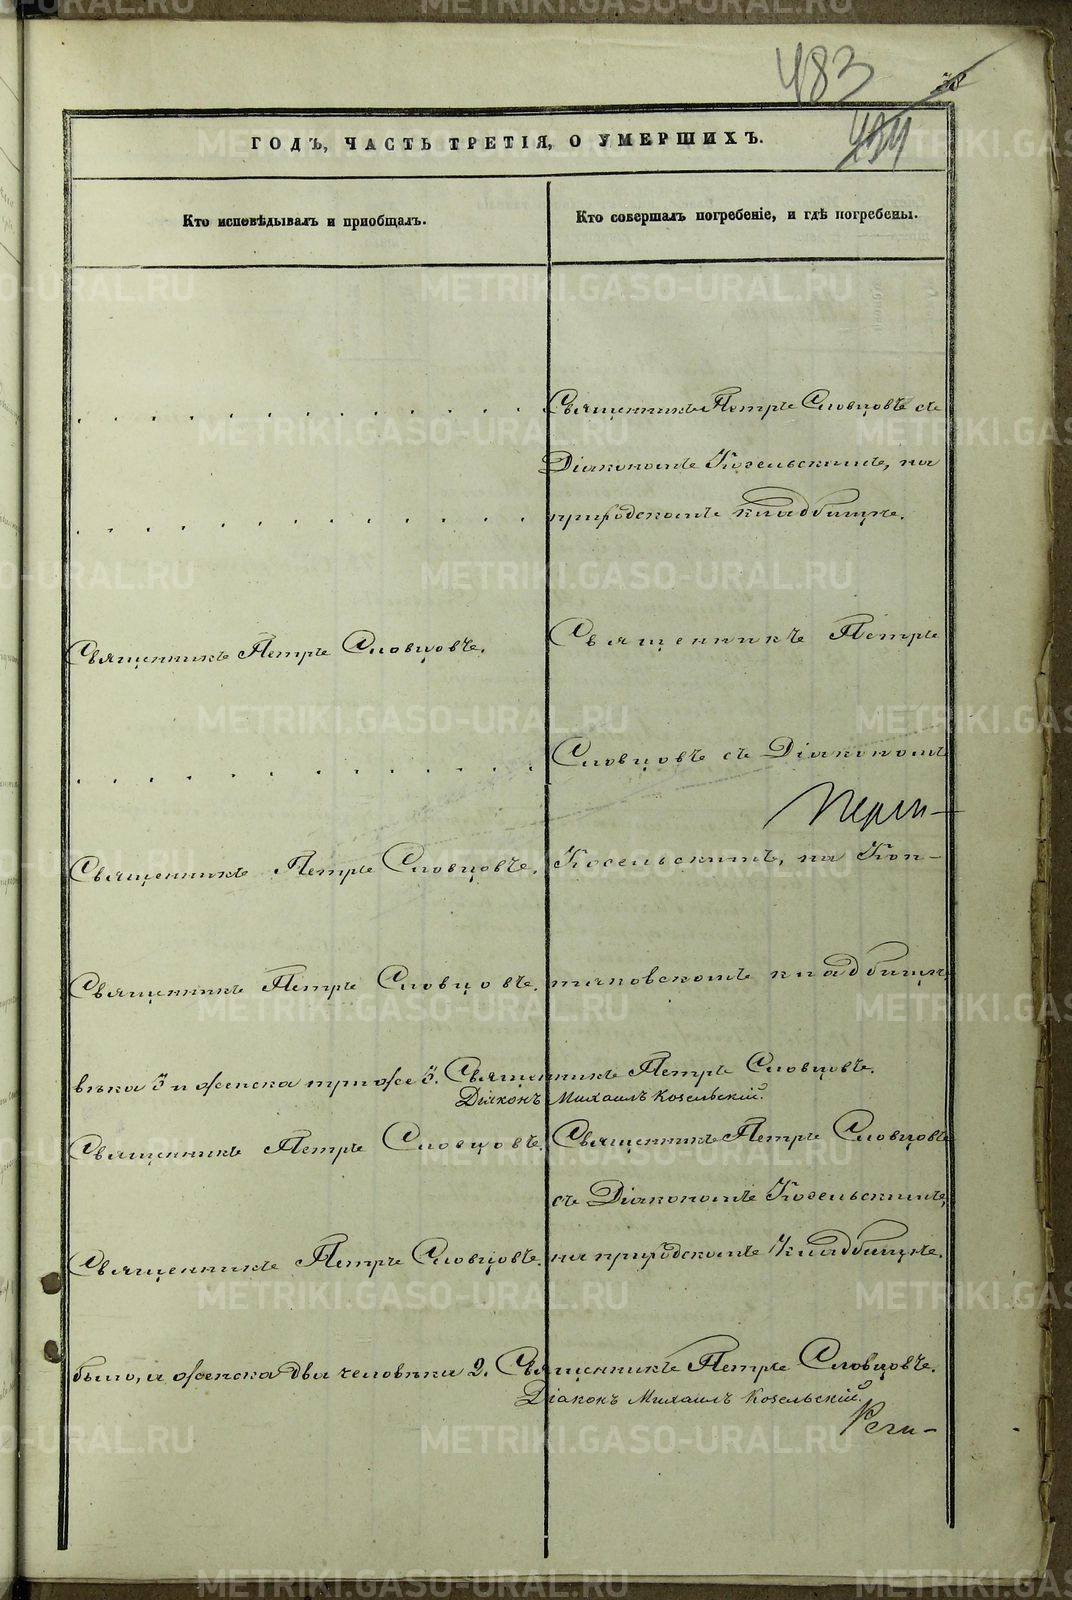 483
38
434
ГОДЪ, ЧАСТЬ ТРЕТІЯ, О УМЕРШИХЪ.
Кто исповѣдывалъ и пріобщалъ.
Кто совершалъ погребеніе, и гдѣ погребены.
Священникъ Петръ Словцовъ съ
Діакономъ Козельскимъ, на
приходскомъ кладбищѣ.
Священникъ Петръ Словцовъ.
Священникъ Петръ
Словцовъ съ Діакономъ
Священникъ Петръ Словцовъ.
Козельскимъ, на Коп-
Священникъ Петръ Словцовъ.
тяковскомъ кладбищѣ
вѣка 3 и женска три же 3. Священникъ Петръ Словцовъ.
Діаконъ Михаилъ Козельскій.
Священникъ Петръ Словцовъ.
Священникъ Петръ Словцовъ
съ Діакономъ Козельскимъ,
Священникъ Петръ Словцовъ.
на приходскомъ кладбищѣ.
было, а женска два человѣка 2. Священникъ Петръ Словцовъ.
Діаконъ Михаилъ Козельскій.
METRIKI.GASO-URAL.RU